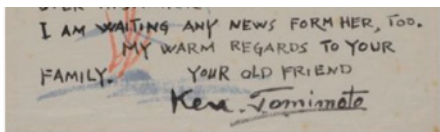 I AM WAITING ANY NEWS FORM HER, TOO.
MY WARM REGARDS TO YOUR
FAMILY. YOUR OLD FRIEND
Ken. Tomimoto